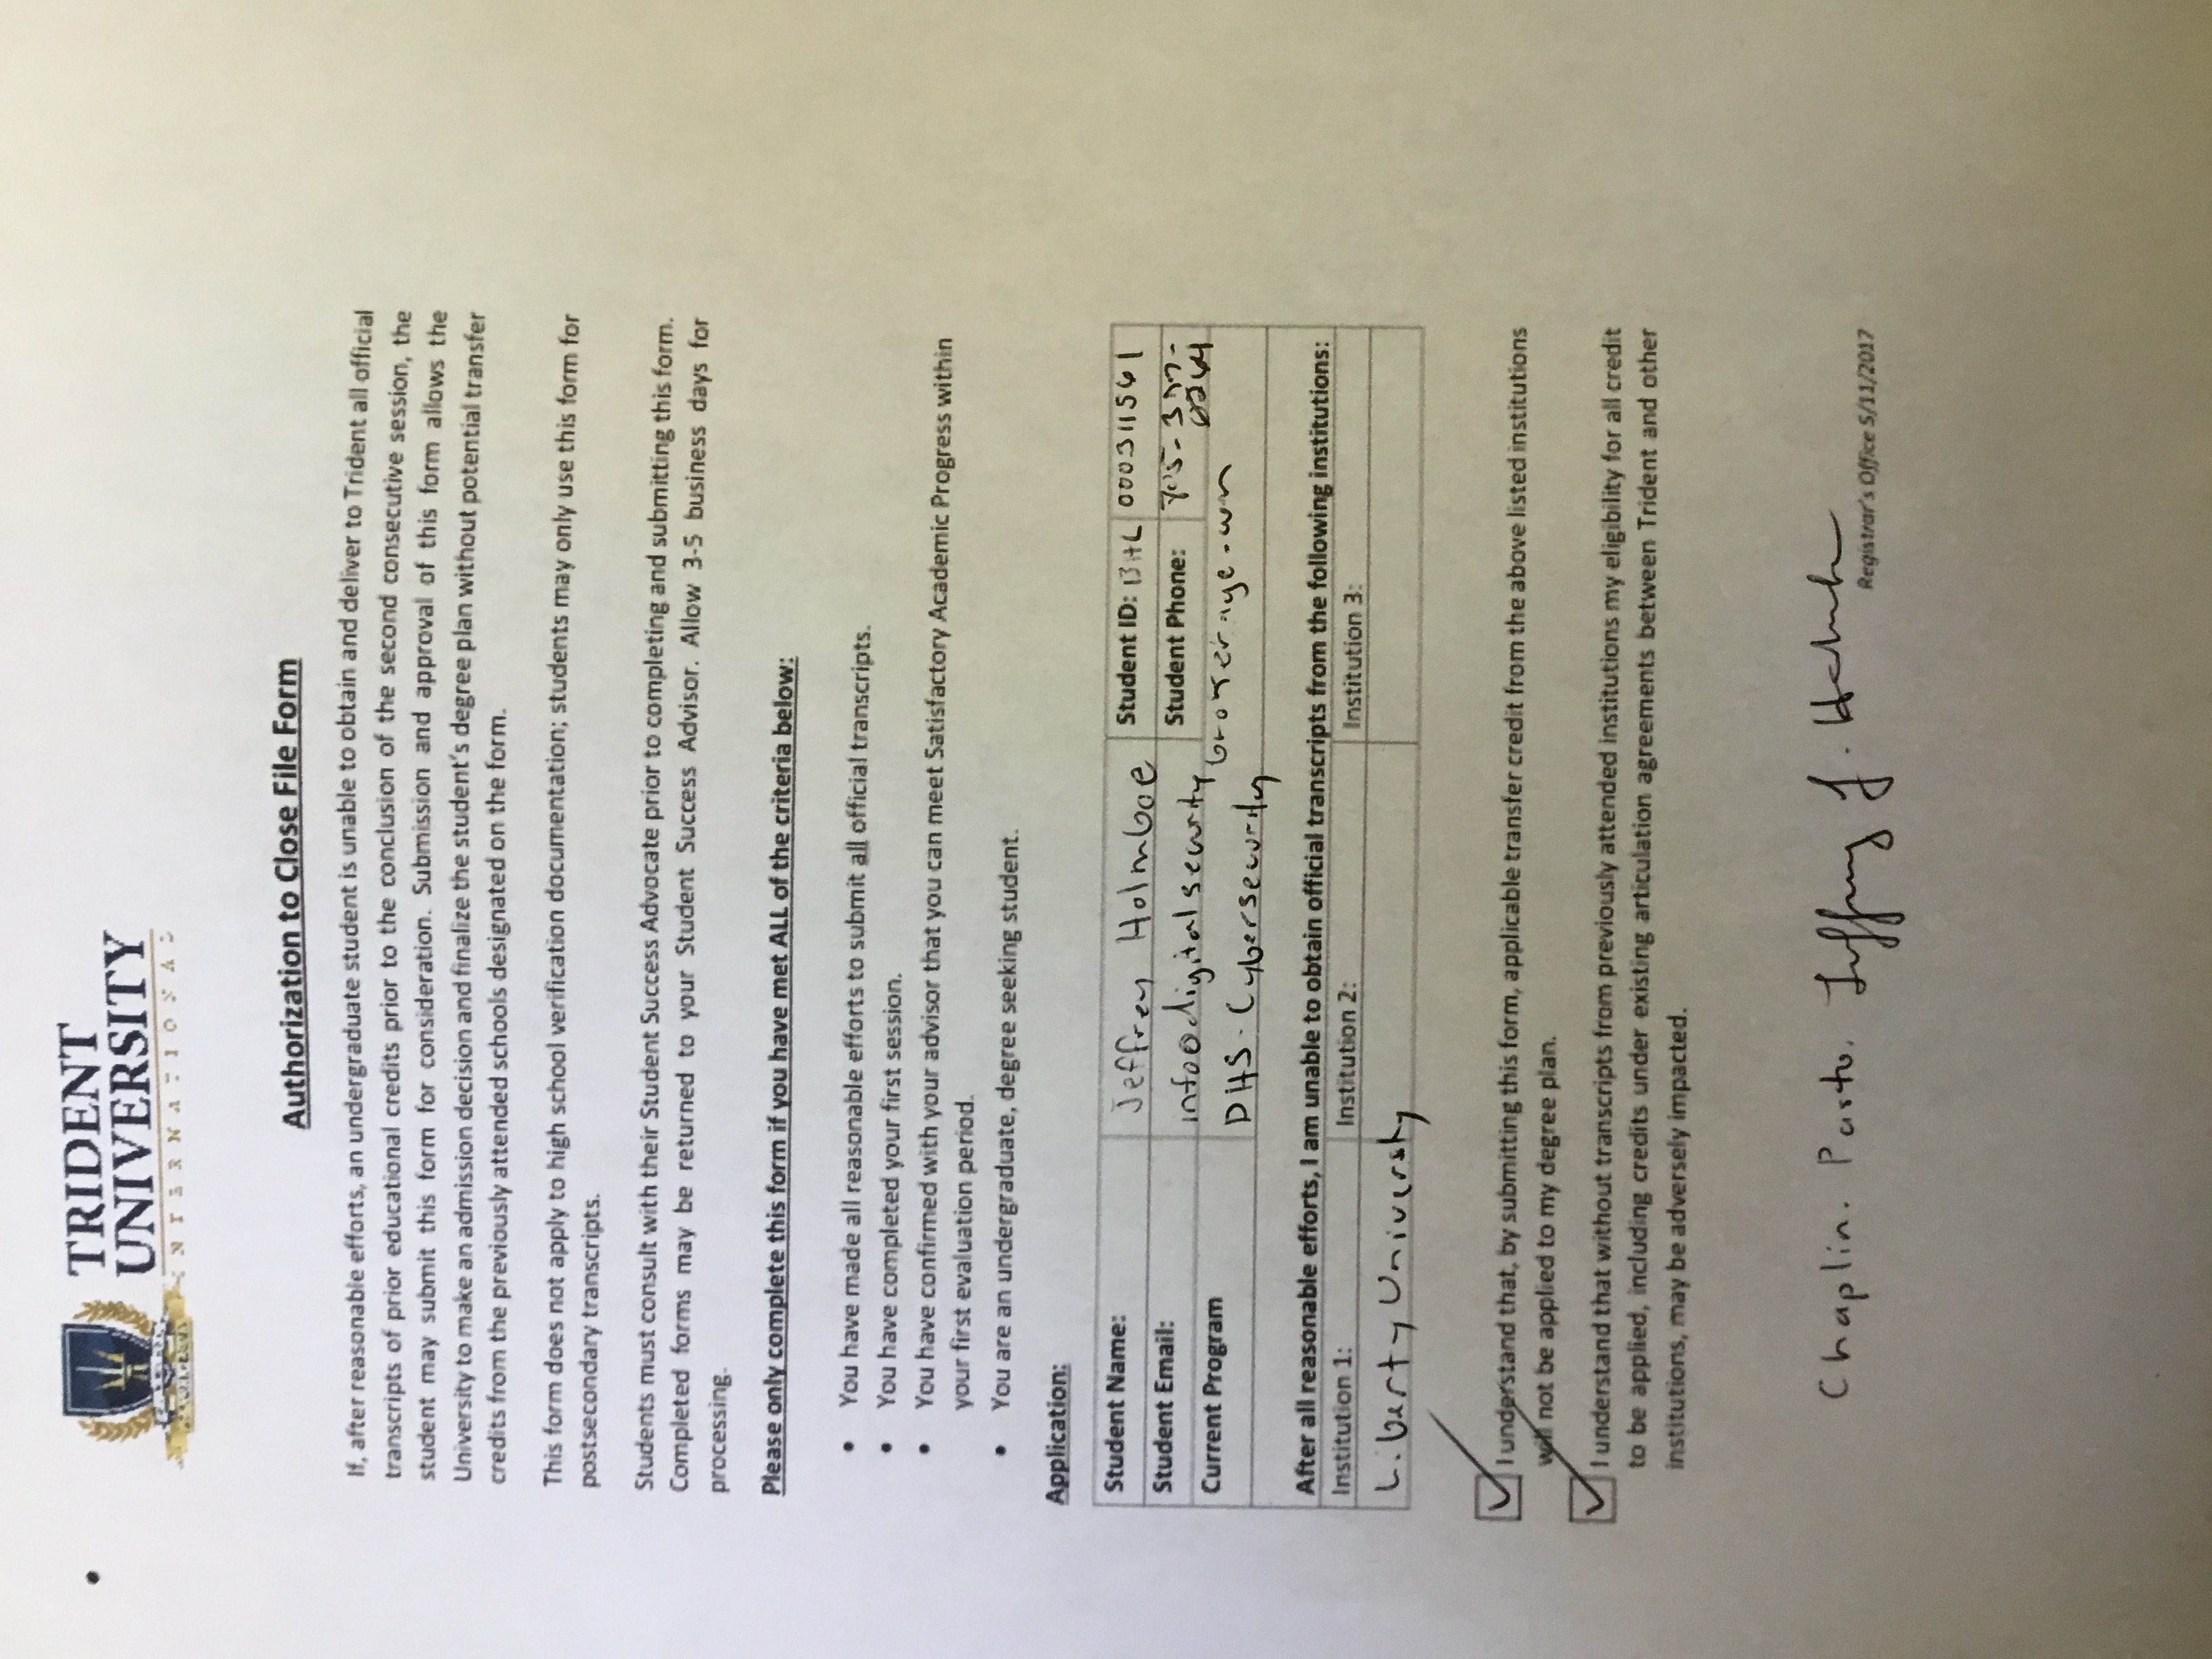 TRIDENT
UNIVERSITY
INTERNATIONAL
Authorization to Close File Form
If, after reasonable efforts, an undergraduate student is unable to obtain and deliver to Trident all official
transcripts of prior educational credits prior to the conclusion of the second consecutive session, the
student may submit this form for consideration. Submission and approval of this form allows the
University to make an admission decision and finalize the student's degree plan without potential transfer
credits from the previously attended schools designated on the form.
This form does not apply to high school verification documentation; students may only use this form for
postsecondary transcripts.
Students must consult with their Student Success Advocate prior to completing and submitting this form.
Completed forms may be returned to your Student Success Advisor. Allow 3-5 business days for
processing.
Please only complete this form if you have met ALL of the criteria below:
• You have made all reasonable efforts to submit all official transcripts.
• You have completed your first session.
• You have confirmed with your advisor that you can meet Satisfactory Academic Progress within
your first evaluation period.
• You are an undergraduate, degree seeking student.
Application:
Student Name: Jeffrey Holmboe Student ID: 000311561
Student Email: info@digitalsecurity Student Phone:
Current Program DHS. Cybersecurity
After all reasonable efforts, I am unable to obtain official transcripts from the following institutions:
Institution 1: Institution 2: Institution 3:
Liberty University
I understand that, by submitting this form, applicable transfer credit from the above listed institutions
will not be applied to my degree plan.
I understand that without transcripts from previously attended institutions my eligibility for all credit
to be applied, including credits under existing articulation agreements between Trident and other
institutions, may be adversely impacted.
Chaplin. Jeffrey J.
Registrar's Office 5/11/2017